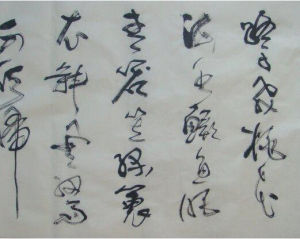 鹭飞桃花
流水鳜鱼肥
青箬笠绿蓑
衣斜风细雨
不须归